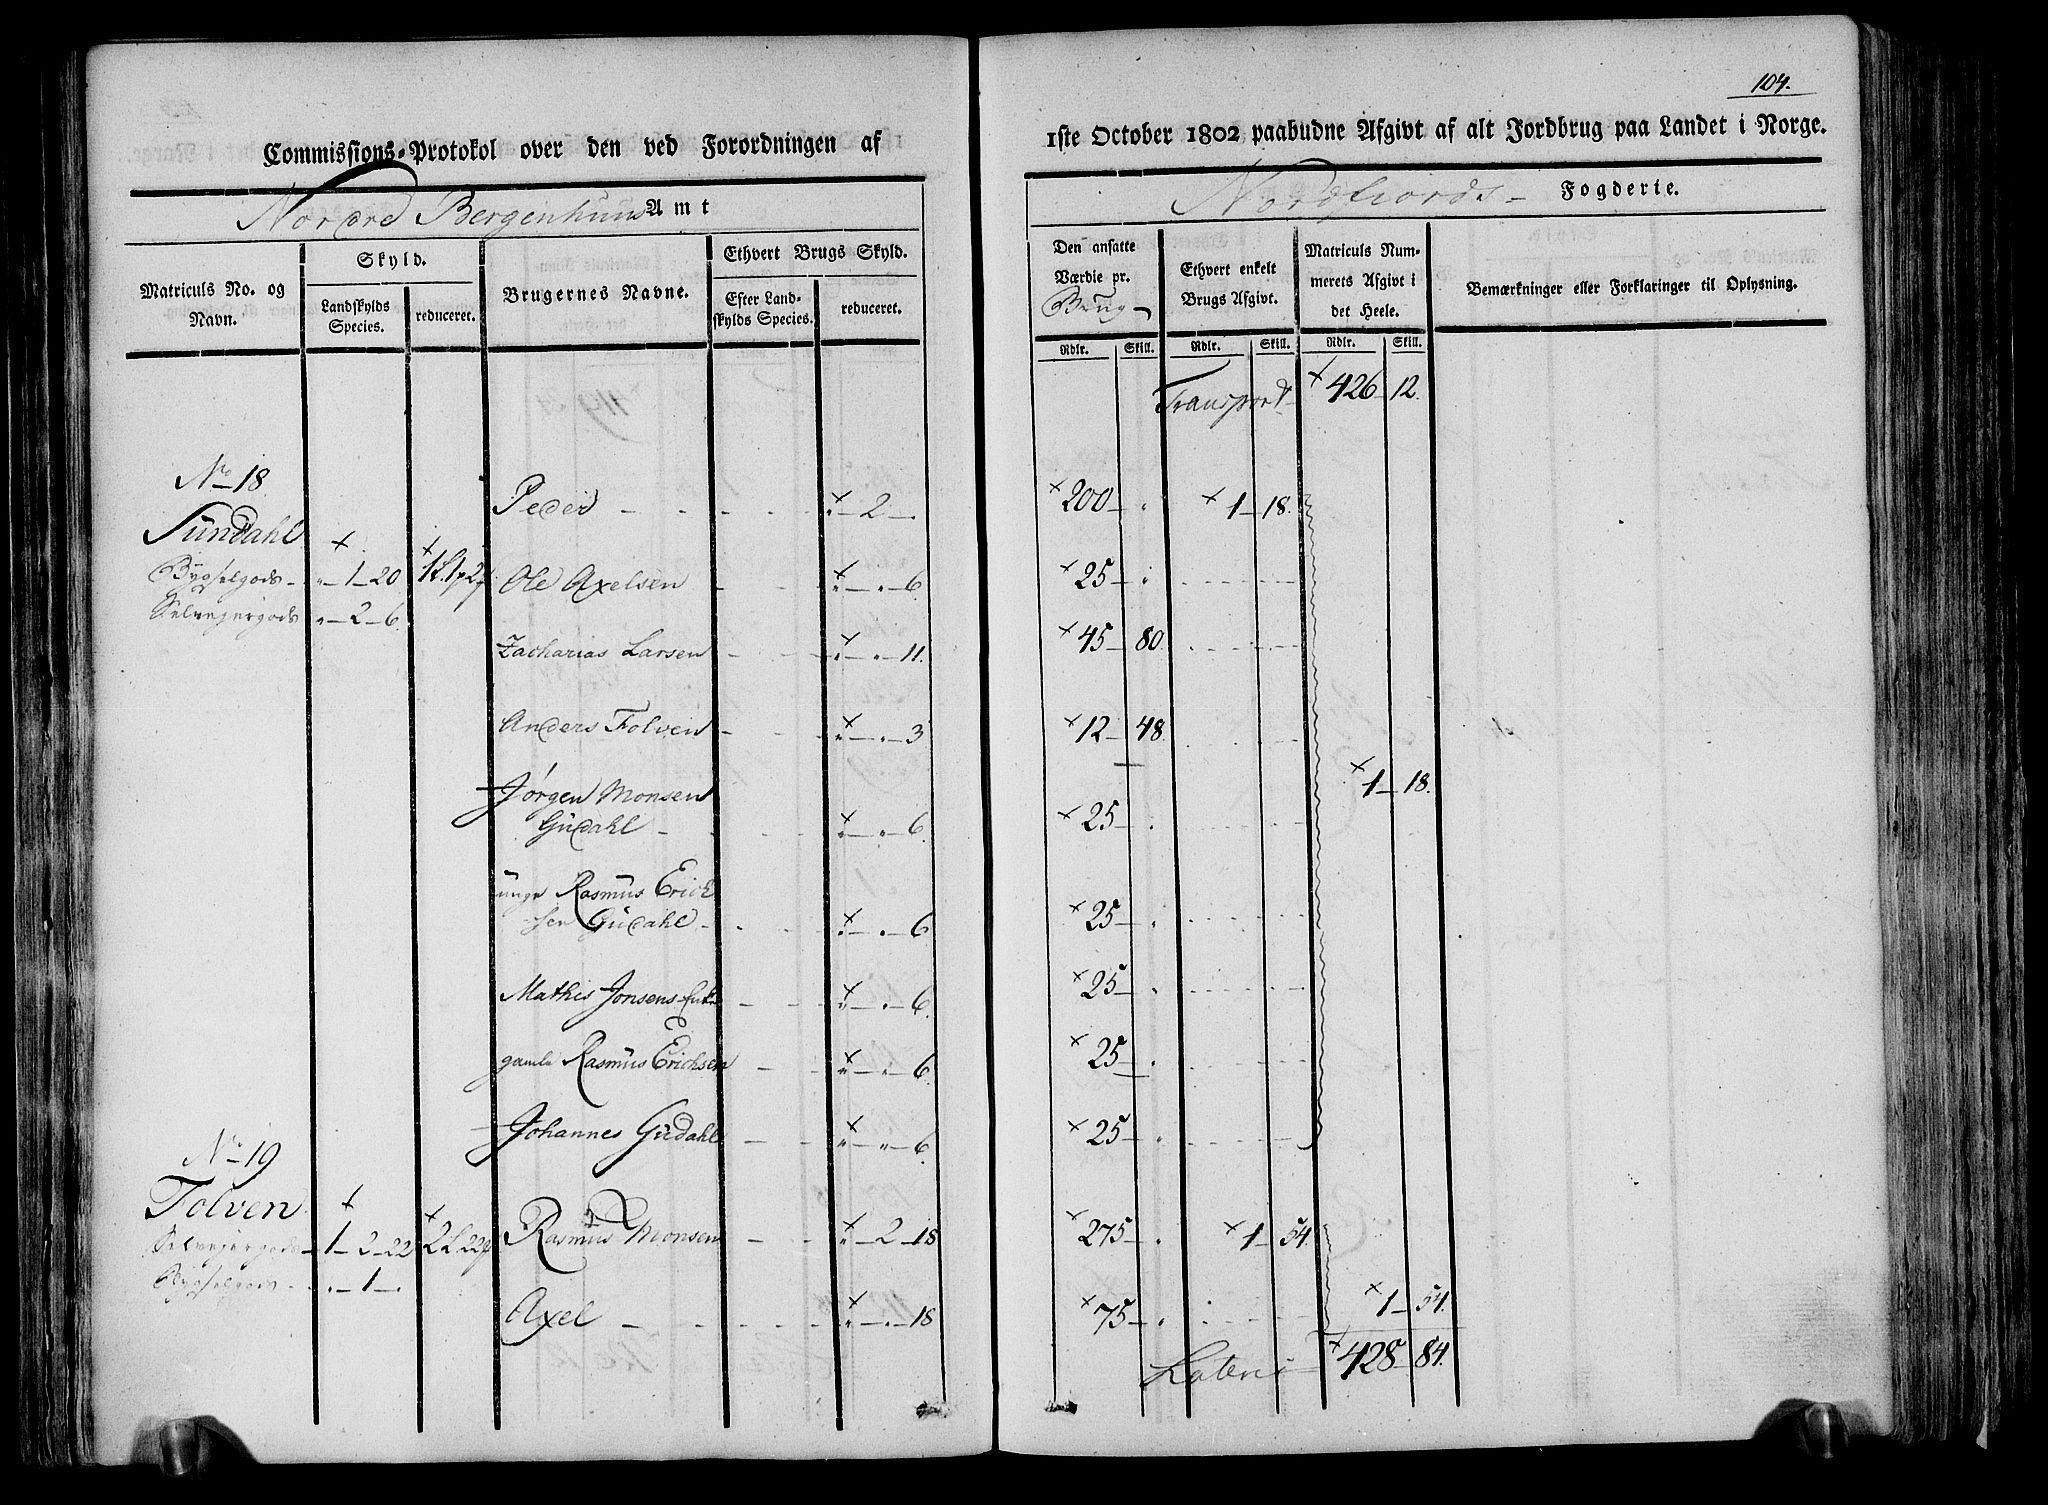 Commissions-Protokol over den ved Forordningen af
Nordre Bergenhuus Amt
Matriculs No. og Navn.
Skyld.
Landskylds Species.
reduceret.
Brugernes Navne.
Ethvert Brugs Skyld.
Efter Landskylds Species.
reduceret.
No 18
Sundahl
Bygselgods - „ - 1 - 20
Selvejergods „ - 2 - 6.
Peder - - - - „ - 2 - „
Ole Axelsen - - - „ - „ - 6.
Zacharias Larsen - - - „ - „ - 11.
Anders Folven - - - „ - „ - 3
Jørgen Monsen
Gudahl - - - - „ - „ - 6.
unge Rasmus Erich
sen Gudahl - - - „ - „ - 6
Mathis Jonsens - - - „ - „ - 6.
gamle Rasmus Erichsen - - „ - „ - 6.
Johannes Gudahl - - „ - „ - 6.
No 19
Folven
Selvejergods - 1 - 2 - 22
Bygselgods - „ - 1 - „
Rasmus Monsen - - „ - 2 - 18
Axel - - - - „ - „ - 18
104.
1ste October 1802 paabudne Afgivt af alt Jordbrug paa Landet i Norge.
Nordfiords - Fogderie.
Den ansatte Værdie pr.
Brug -
Ethvert enkelt Brugs Afgivt.
Matriculs Nummerets Afgivt i det Heele.
Bemærkninger eller Forklaringer til Oplysning.
Rdlr. Skill. Rdlr. Skill. Rdlr. Skill.
Transport × 426 - 12.
× 200 - „ × 1 - 18.
× 25 - „
× 45 - 80.
× 12 - 48.
× 1 - 18.
× 25 - „
× 25 - „
× 25 - „
× 25 - „
× 25 - „
× 275 - „ × 1 - 54.
× 1 - 54.
× 75 - „
Lateris × 428 - 84.